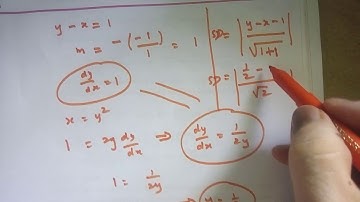 y - x = 1
m = -(-1/1) = 1
dy/dx = 1
x = y²
1 = 2y dy/dx ⇒ dy/dx = 1/2y
1 = 1/2y
⇒ y = 1
SD = | y - x - 1 / √1+1 |
SD = | 1/2 - / √2